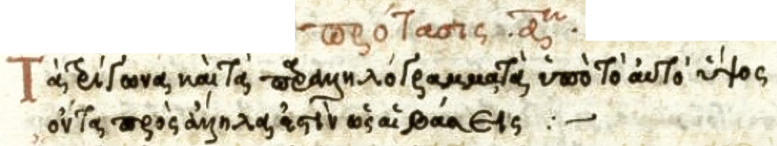 πρότασις. αη.
Τὰ τρίγωνα, καὶ τὰ παραλληλόγραμματὰ ὑπὸ τὸ αὐτὸ ὕψος
ὄντα, πρὸς ἄλληλα ἐστὶν ὡς αἱ βάσεις :—